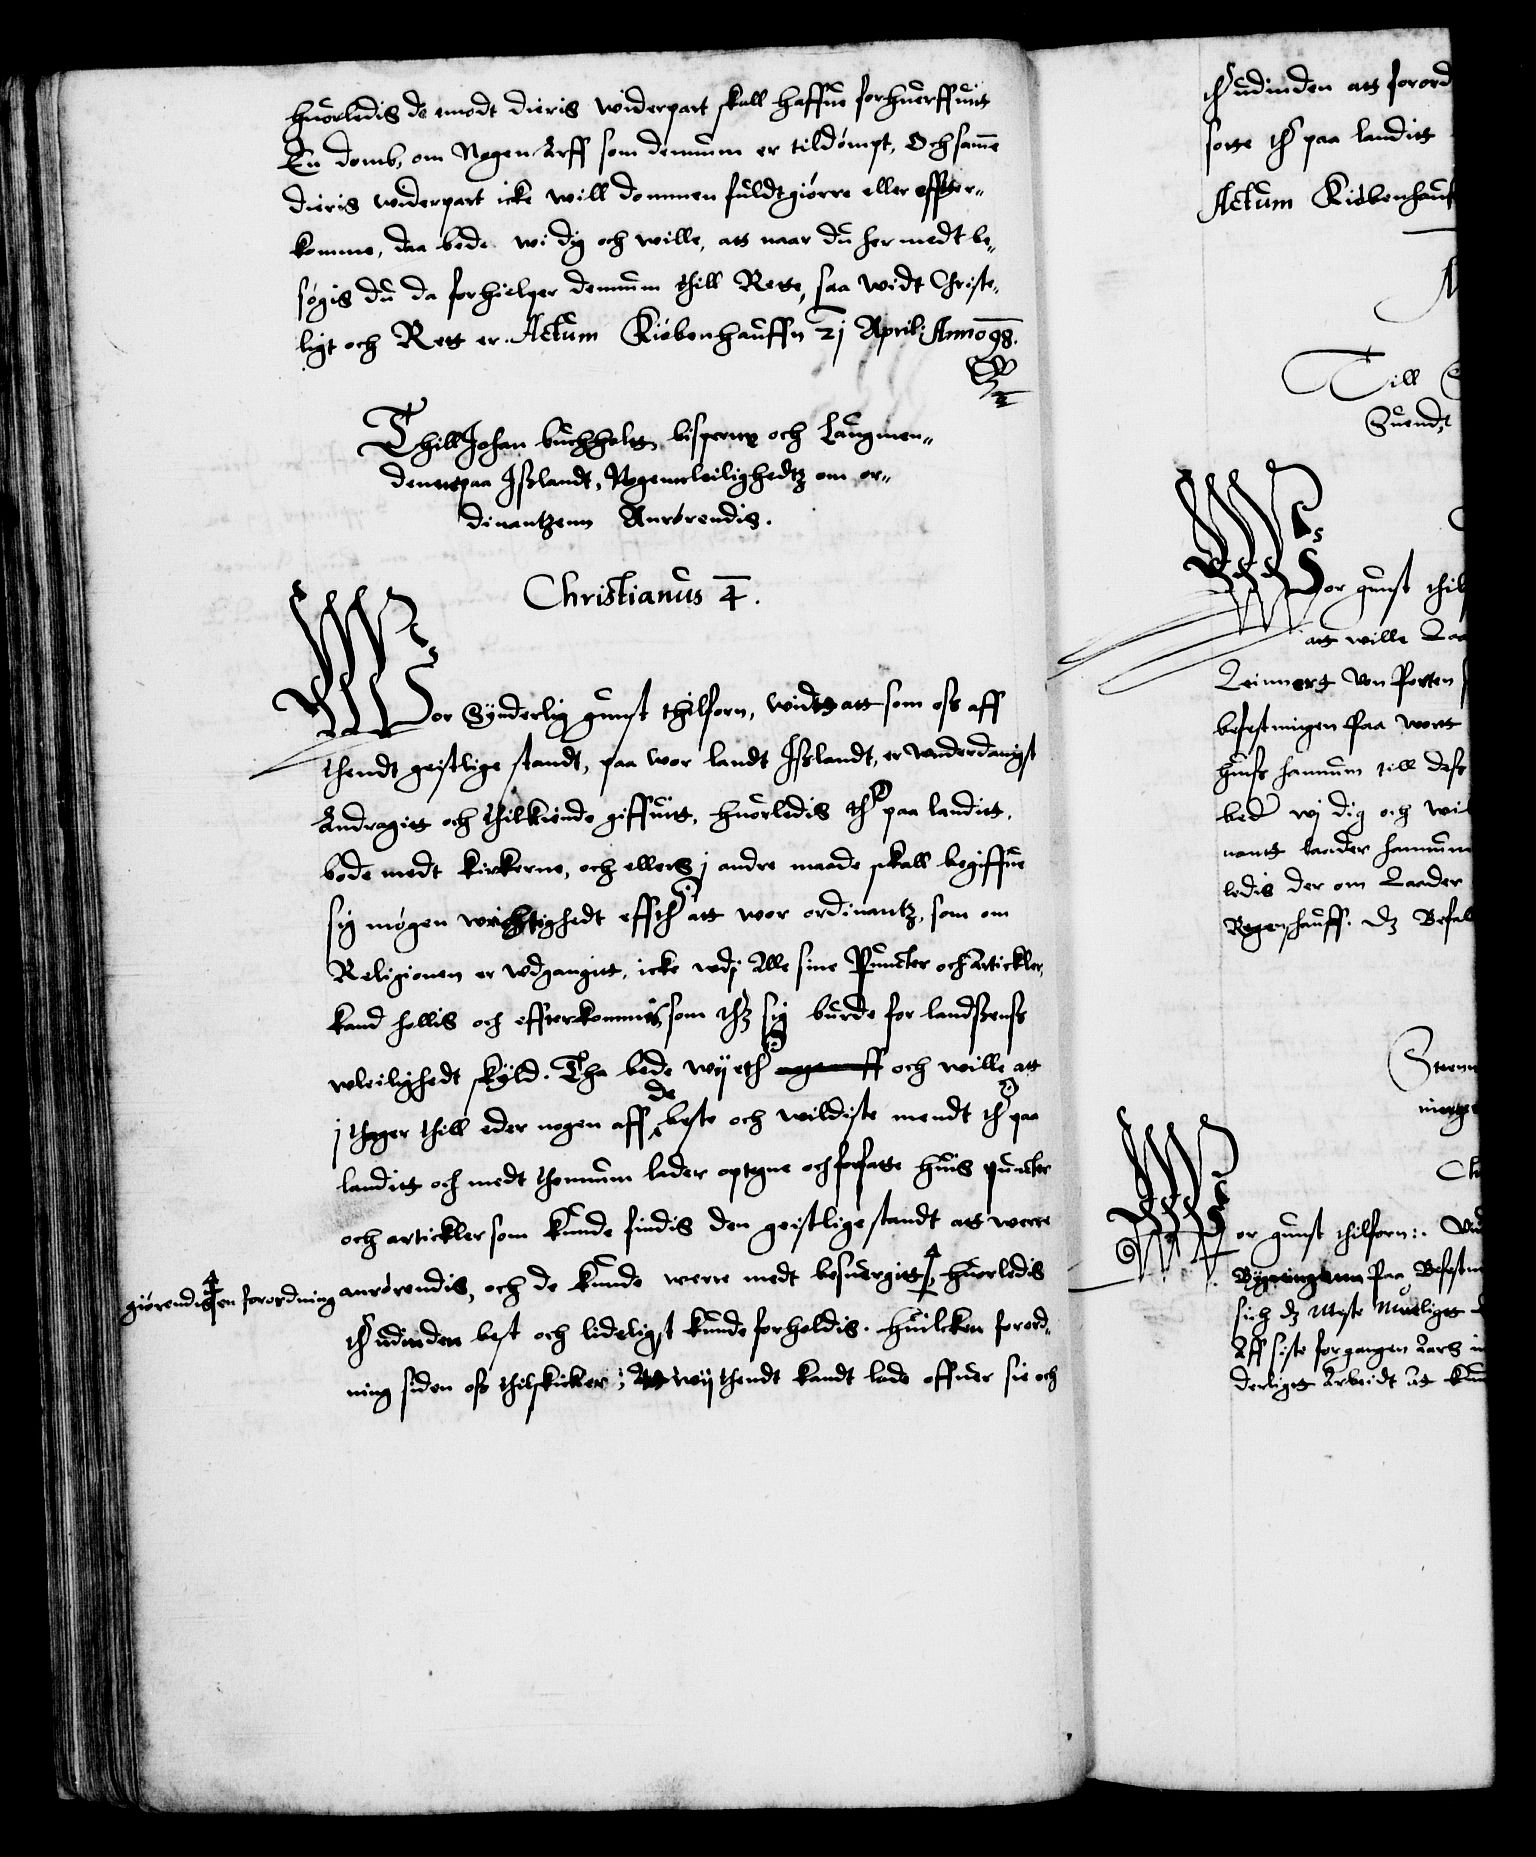 huorledis de emodt dieris widerpart skall haffue forhuerffuit
En domb, om Nogen Arff som dennum er tildømpt, Och samme
dieris widerpart icke will dommen fuldtgiørre eller effter-
komme, daa bede wi dig och wille, att naar du her medt be-
søgis du da forhielper dennum thill Rette, saa widt Christe-
ligt och Rett er. Actum Kiøbenhauffn 21 April: Anno 98.
Thill Johan buchholtt, bisperne och Laugmen-
denne paa Ißlandt, Nogen leilighedtz om or-
dinantzenn Anrørendis.
Christianus 4.
Wor Synderlig gunst thilforn, widtt att som oss aff
thendt geistlige standt, paa wor landt Ißlandt, er wnderdanigst
Andragitt och thilkiende giffuitt, huorledis ther paa landitt,
bode medt kirkerne, och ellers j andre maade skall begiffue
sig mogen wrichtighedt effther att wor ordinantz, som om
Religionen er wdgangitt, icke wdj Alle sine Puncter och Artickler,
kand hollis och effterkommis som thz sig burde for landßenss
wleilighedt skyld. Tha bede wij ether och wille att
j thager thill eder nogen aff de beste och wildiste mendt ther paa
landitt och medt thennum lader optegne och forfatte huis puncter
och artickler som kunde findis den geistlige standt att werre
anrørendis, och de kunde werre medt besuergitt, huorledis
giørendis en forordning
ther udinden best och lideligst kunde forholdis. Huilcken forord-
ning siden oss thilskicker, Att wij thendt kandt lade offuer sie och
ther udinden att forord
sette ther paa landitt
Actum Kiøbenhauf
Till
Suendt
Wor gunst thil
att wille Laa
Leinnertt Von Porten
befestningen Paa wortt
huiss hannum till dess
beder wj dig och wil
nantt laader hannum
ledis der om Laader
Regenskauff. dz Befal
Steenn
Ch
Wor gunst thilforn:. Vid
Bygningenn Paa Befestn
sich dz Meste Mueligtt
Aff siste forgangen Aars
derligtt Arbeidt att kun